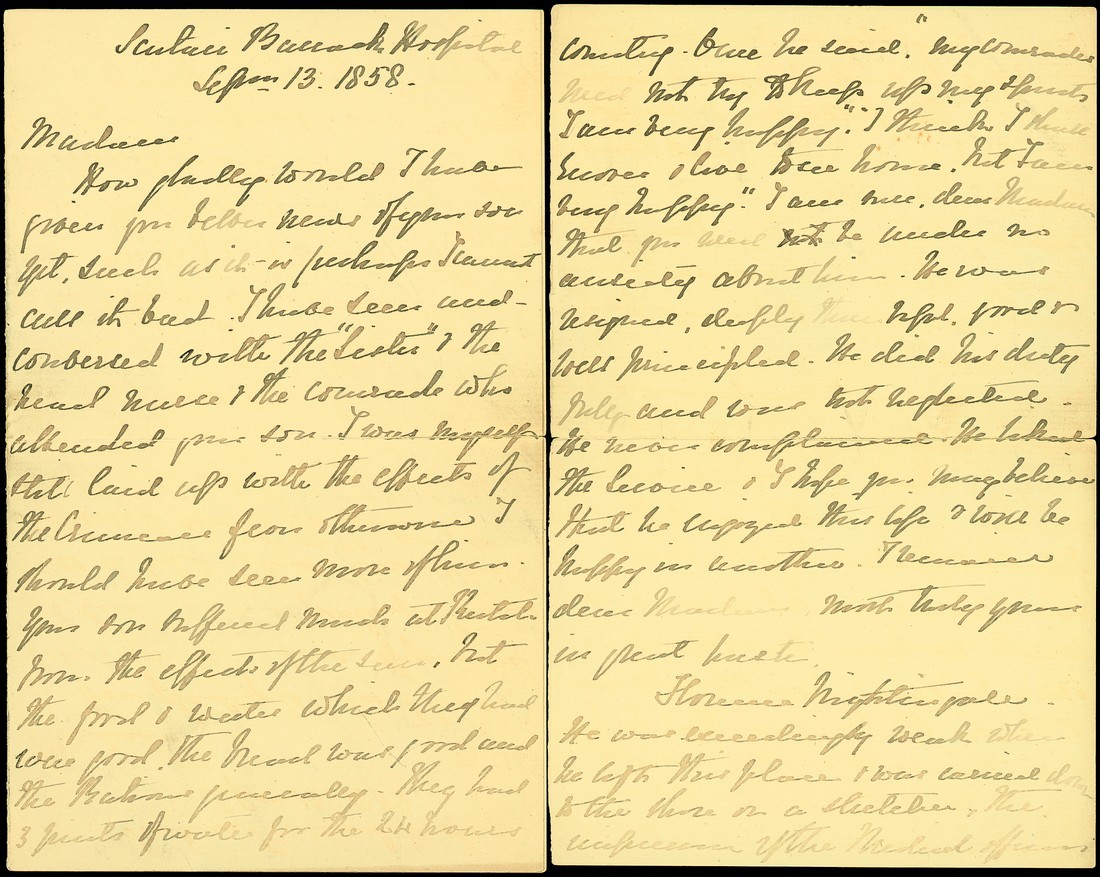 Scutari Barrack Hospital
Sepm 13. 1858.
Madam
How gladly would I have
given you better news of your son
yet, such as it is perhaps I cannot
call it bad. I have seen and
conversed with the "Sister" & the
head nurse & the comrade who
attended your son. I was myself
still laid up with the effects of
the Crimean fever otherwise I
should have seen more of him.
Your son suffered much at
from the effects of the sun, but
the food & water which they had
were good, the bread was good and
the Rations generally. They had
3 pints of water for the 24 hours
country. Once he said, "my comrades
need not try to keep up my spirits
I am very happy". "I think I shall
never live to see home, but I am
very happy." I am sure, dear Madam
that you need not be under no
anxiety about him. He was
resigned, deeply good &
well principled. He did his duty
fully and was not neglected.
He never complained. He liked
the Service & I hope you may believe
that he enjoyed this life & will be
happy in another. I remain
dear Madam most truly yours
in great haste,
Florence Nightingale.
He was exceedingly weak when
he left this place & was carried down
to the shore on a stretcher. The
impression of the Medical officers